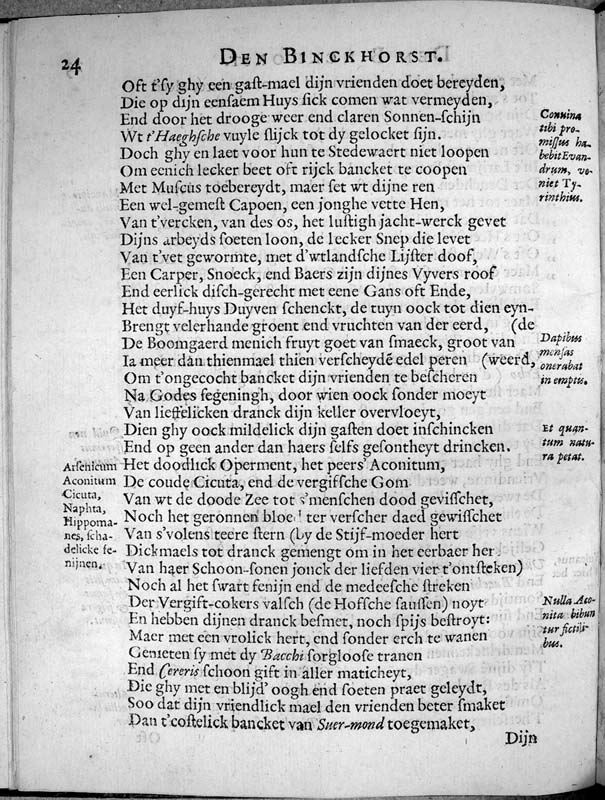 24
DEN BINCKHORST.
Oft t'sy ghy een gast-mael dijn vrienden doet bereyden,
Die op dijn eensaem Huys sick comen wat vermeyden,
End door het drooge weer end claren Sonnen-schijn
Wt t'Haeghsche vuyle slijck tot dy gelocket sijn.
Doch ghy en laet voor hun te Stedewaert niet loopen
Om eenich lecker beet oft rijck bancket te coopen
Met Muscus toebereydt, maer set wt dijne ren
Een wel-gemest Capoen, een jonghe vette Hen,
Van t'vercken, van des os, het lustigh jacht-werck gevet
Dijns arbeyds soeten loon, de lecker Snep die levet
Van t'vet gewormte, met d'wtlandsche Lijster doof,
Een Carper, Snoeck, end Baers zijn dijnes Vyvers roof
End eerlick disch-gerecht met eene Gans oft Ende,
Het duyf-huys Duyven schenckt, de tuyn oock tot dien eyn-
Brengt velerhande groent end vruchten van der eerd, (de
De Boomgaerd menich fruyt goet van smaeck, groot van
Ia meer dan thienmael thien verscheydē edel peren (weerd,
Om t'ongecocht bancket dijn vrienden te bescheren
Na Godes segeningh, door wien oock sonder moeyt
Van lieffelicken dranck dijn keller overvloeyt,
Dien ghy oock mildelick dijn gasten doet inschincken
End op geen ander dan haers selfs gesontheyt drincken.
Het doodlick Operment, het peers' Aconitum,
De coude Cicuta, end de vergiffsche Gom
Van wt de doode Zee tot s'menschen dood gevisschet,
Noch het geronnen bloed ter verscher daed gewisschet
Van s'volens teere stern (by de Stijf-moeder hert
Dickmaels tot dranck gemengt om in het eerbaer her
Van haer Schoon-sonen jonck der liefden vier t'ontsteken)
Noch al het swart fenijn end de medeesche streken
Der Vergift-cokers valsch (de Hoffsche saussen) noyt
En hebben dijnen dranck besmet, noch spijs bestroyt:
Maer met een vrolick hert, end sonder erch te wanen
Genieten sy met dy Bacchi sorgloose tranen
End Cereris schoon gift in aller maticheyt,
Die ghy met en blijd' oogh end soeten praet geleydt,
Soo dat dijn vriendlick mael den vrienden beter smaket
Dan t'costelick bancket van Suer-mond toegemaket,
Dijn
Convina
tibi pro-
missus ha-
bebit Evan-
drum, ve-
niet Ty-
rinthius.
Dapibus
mensas
onerabat
inemptis.
Et quan-
tum natu-
ra petat.
Arsenicum
Aconitum
Cicuta,
Naphta,
Hippoma-
nes, scha-
delicke fe-
nijnen.
Nulla Aco-
nita bibun
tur fictili-
bus.